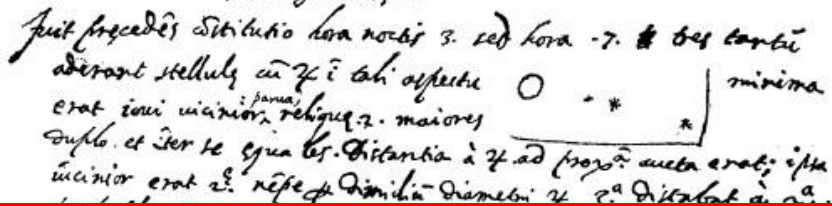 fuit precedẽs cõstitutio hora noctis 3. sed hora .7. tres tantũ
aderant stellulę cũ ♃ ĩ tali aspectu minima
erat ioui uicinior, parua, reliquę 2. maiores
duplo. et ĩter se ęquales. Distantia à ♃ ad proxã aucta erat; ipsa
uicinior erat 2ę. nẽpe dimidiũ diametri ♃ 3ª distabat à 2ª